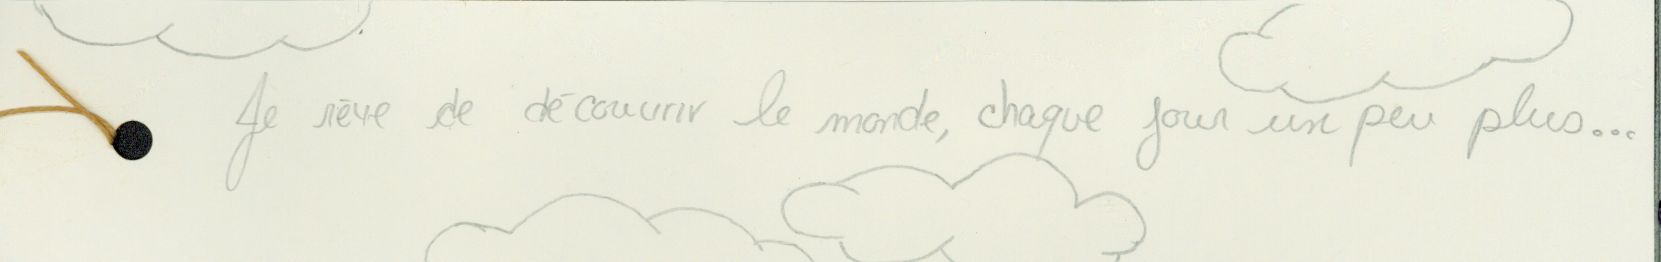 Je rêve de découvrir le monde, chaque jour un peu plus...